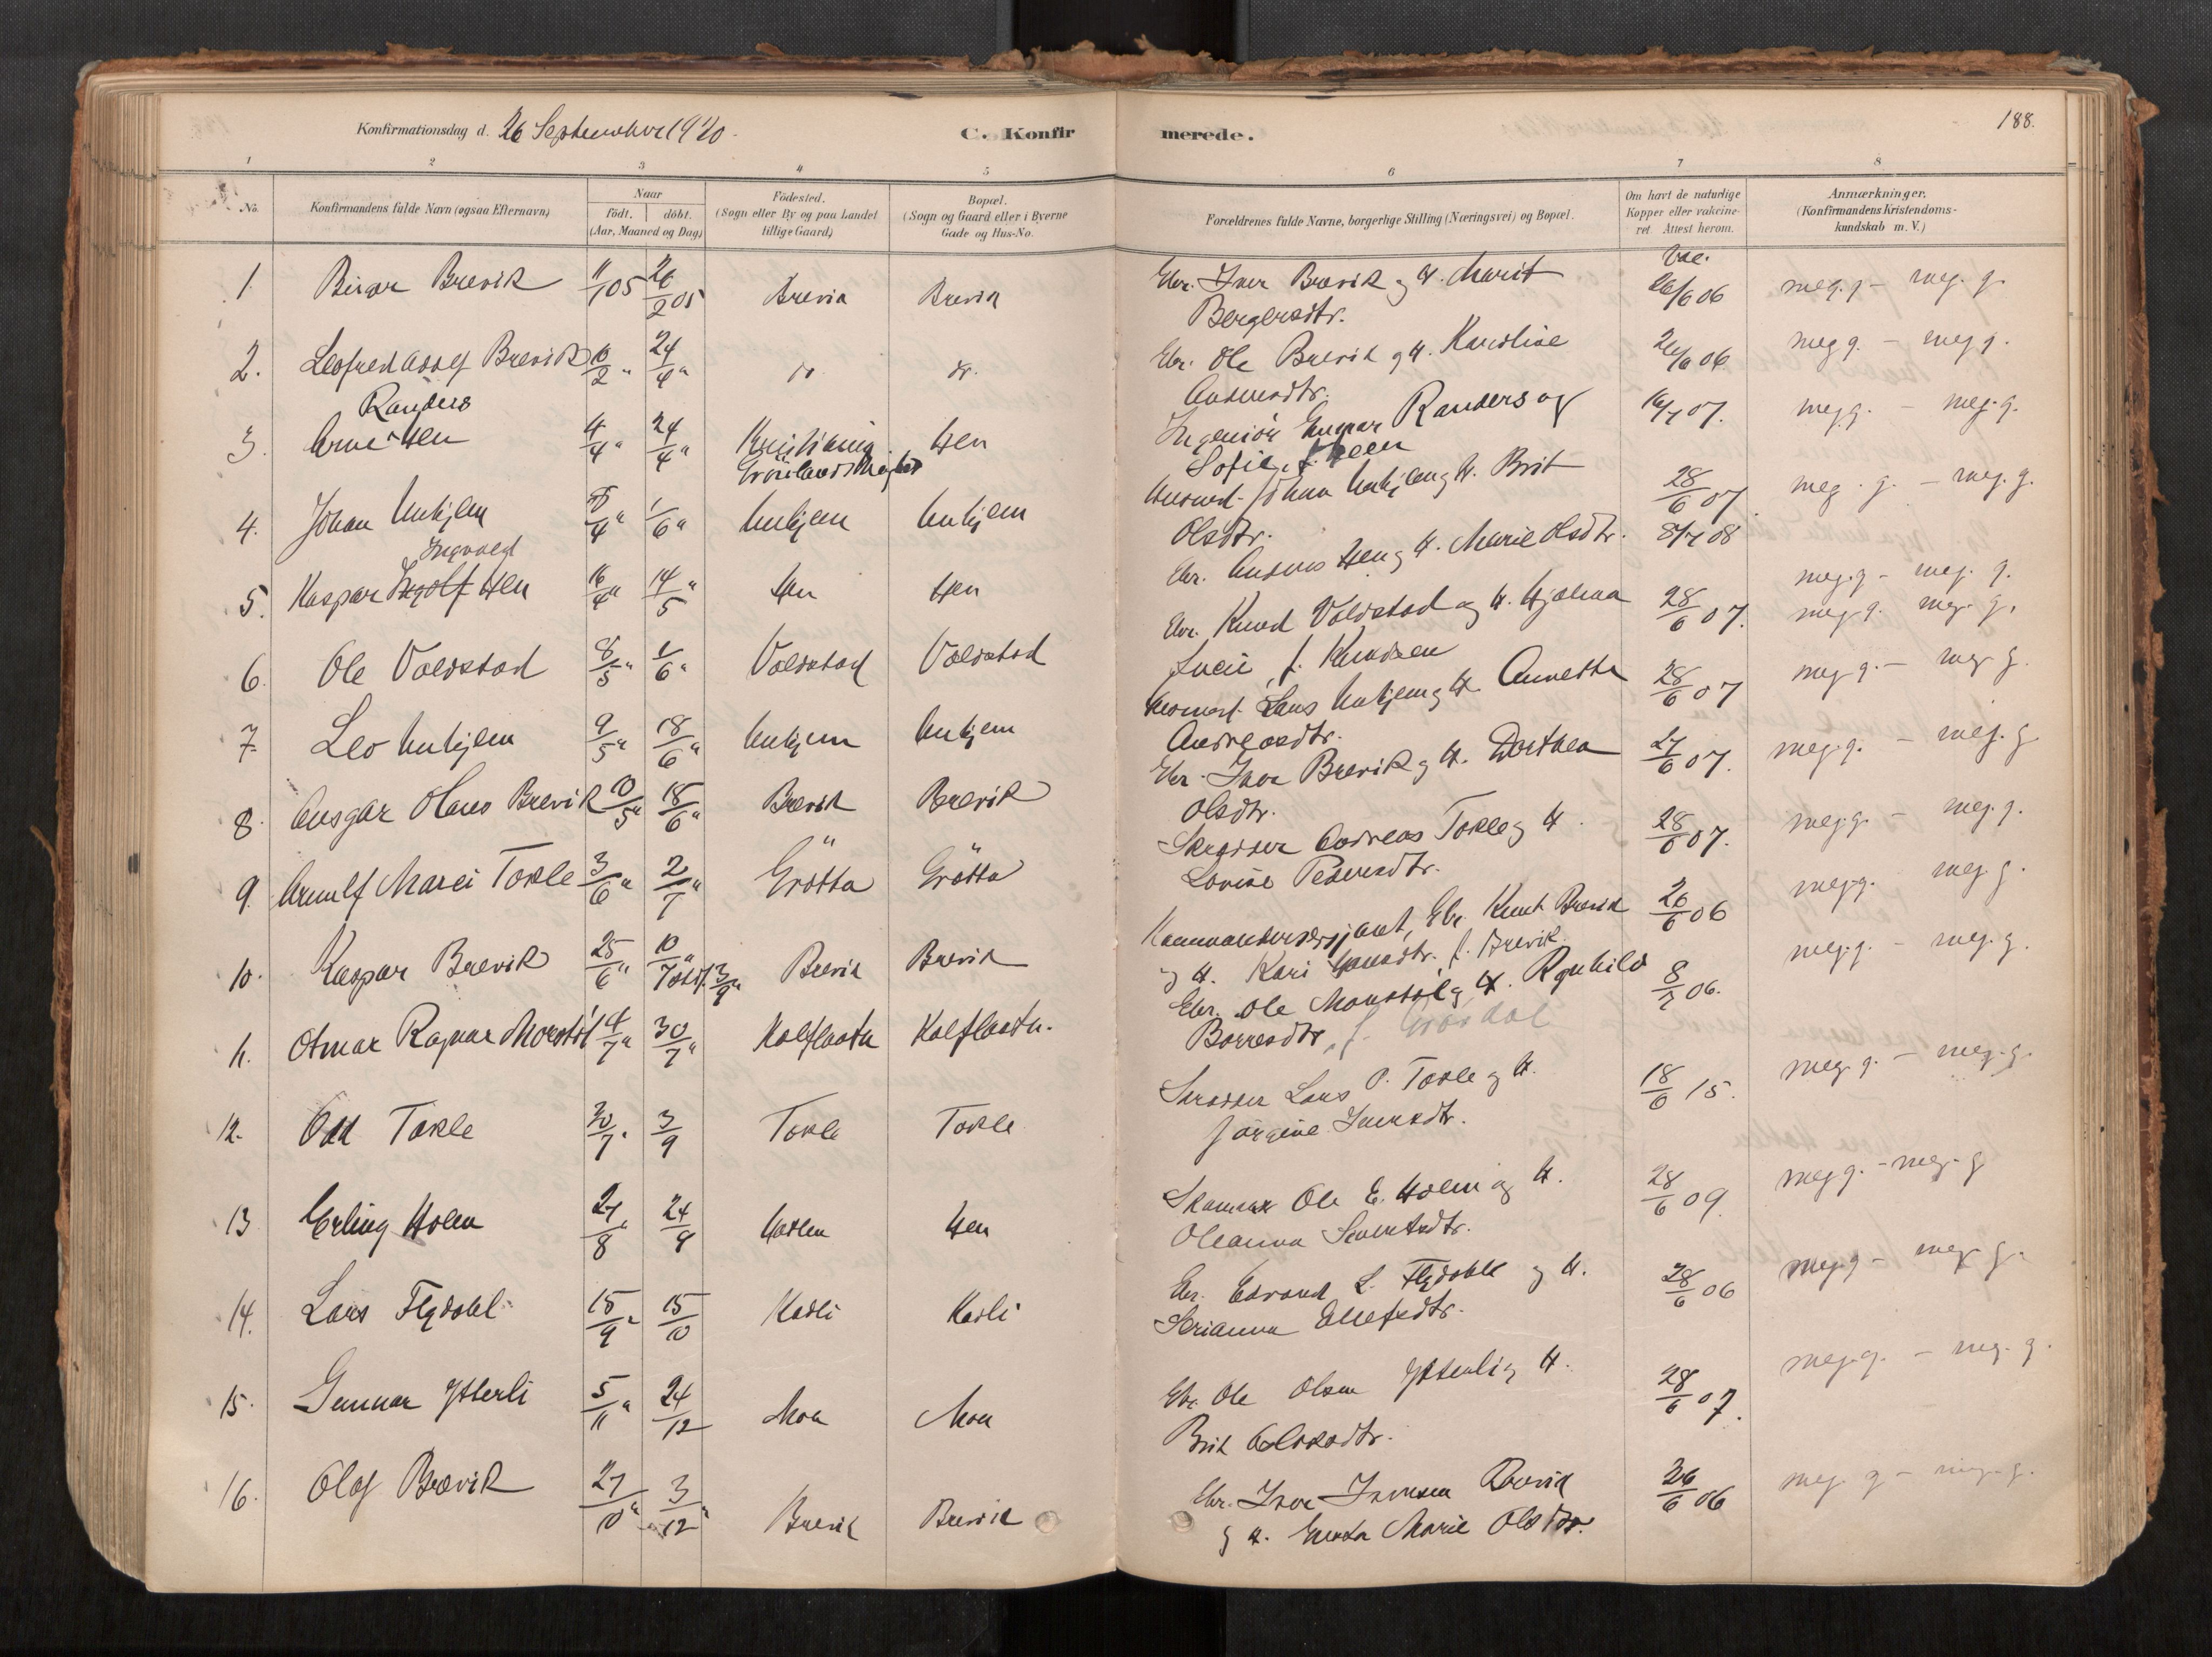 Konfirmationsdag d. 26 September 1920. C. Konfirmerede. 188.
1 2 3 4 5 6 7 8
No. Konfirmandens fulde Navn (ogsaa Efternavn) Naar födt. döbt. (Aar, Maaned og Dag) Födested. (Sogn eller By og paa Landet tillige Gaard) Bopæl. (Sogn og Gaard eller i Byerne Gade og Hus-No. Forældrenes fulde Navne, borgerlige Stilling (Næringsvei) og Bopæl. Om havt de naturlige Kopper eller vakcineret. Attest herom. Anmærkninger. (Konfirmandens Kristendomskundskab m. V.)
Vac.
1. Brevik 11/1 05 26/2 05 Brevik Brevik Ebr. Iver Brevik og H. Marit 26/6 06 meg. g - meg. g.
Bergersdtr.
2. Leofred Adolf Brevik 10/2 " 24/4 " do do. Ebr. Ole Brevik og H. Karoline 26/6 06 meg g. - meg g.
Andersdtr.
Randers
3. Arne Hen 4/4 " 24/4 " Kristiania Hen Ingeniör Gunnar Randers og 16/7 07. meg g. - meg. g.
Grönlands Menighed Sofie f. Heen
4. Johan Unhjem 8/4 " 1/6 " Unhjem Unhjem Johan Unhjem og H. Brit 28/6 07 meg. g. - meg. g.
Olsdtr.
Ingvald
5. Kaspar Ingolf Hen 16/4 " 14/5 " Hen Hen Ebr. Anders Hen og H. Marie Olsdtr. 8/7 08 meg. g - meg. g.
6. Ole Voldstad 8/5 " 1/6 " Voldstad Voldstad Ebr. Knud Voldstad og H. Hjalma 28/6 07. meg g. meg. g.
Lucie, f. Knudsen
7. Leo Unhjem 9/5 " 18/6 " Unhjem Unhjem Lars Unhjem og H. Annette 28/6 07 meg g. - meg g.
Andreasdtr.
8. Ansgar Olaus Brevik 10/5 " 18/6 " Brevik Brevik Ebr. Iver Brevik og H. Dorthea 27/6 07. meg. g. - meg. g.
Olsdtr.
9. Arnulf Marei Tokle 3/6 " 2/7 " Grötta Grötta Skrædder Andreas Tokle og H. 28/6 07. meg. g. - meg. g.
Lovise Pedersdtr.
10. Kaspar Brevik 25/6 " 10/7 " 3/9 " Brevik Brevik Kommandersersjant, Ebr. Knut Brevik 26/6 06 meg g. meg. g.
og H. Kari f. Brevik.
11. Otmar Ragnar Morstöl 4/7 " 30/7 " Kalflaata Kalflaata. Ebr. Ole Morstöl og H. Ragnhild 8/7 06. meg. g. - meg. g.
Borresdtr., f. Grövdal
12. Odd Tokle 30/7 " 3/9 Tokle Tokle Skrædder Lars P. Tokle og H. 18/6 15. meg. g - meg. g.
Jörgine Iversdtr.
13 Erling Holm 27/8 24/9 Hen Skomaker Ole E. Holm og H. 28/6 09. meg g. - meg. g
Oleanna
14. Lars Flydal 15/9 " 15/10 Kavli Kavli Ebr. Edvard L. Flydal og H. 28/6 06 meg. g - meg g.
Serianna Ellefsdtr.
15. Gunnar Ytterli 5/11 " 24/12 Moa Moa Ebr. Ole Olsen Ytterli og H. 28/6 07. meg. g. - meg. g.
Brit
16. Olaf Brevik 27/10 " 3/12 " Brevik Brevik Ebr. Iver Iversen Brevik 26/6 06 meg. g - meg. g.
og H. Marie Olsdtr.